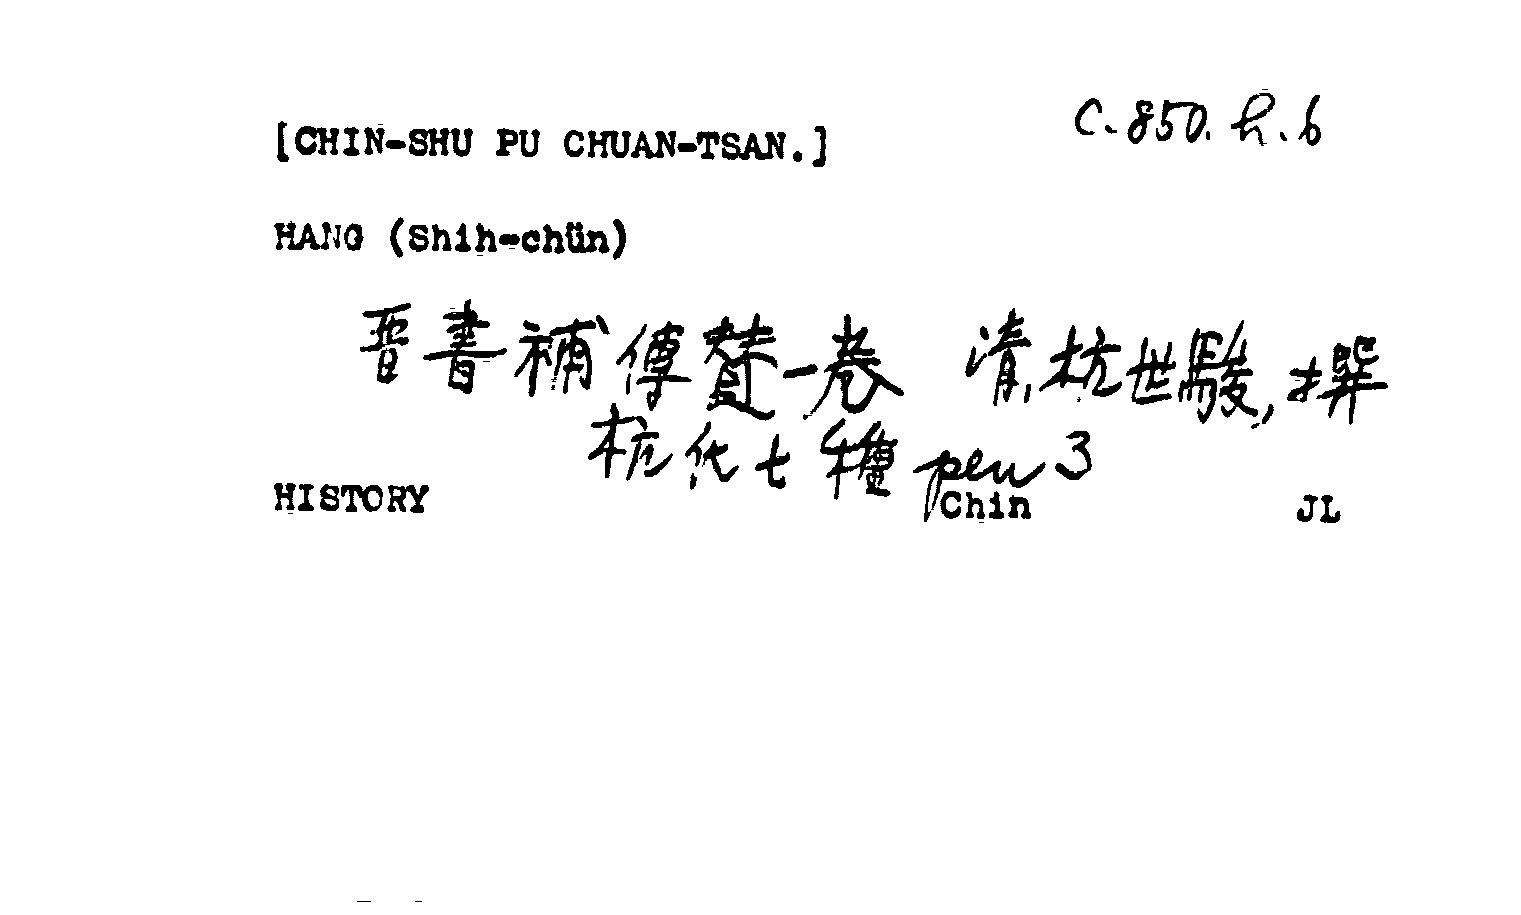 [CHIN-SHU PU CHUAN-TSAN.] C.850.h.6
HANG (Shih-chün)
晋書補傳贊一卷 清,杭世駿,撰
杭氏七種 pen 3
HISTORY Chin JL